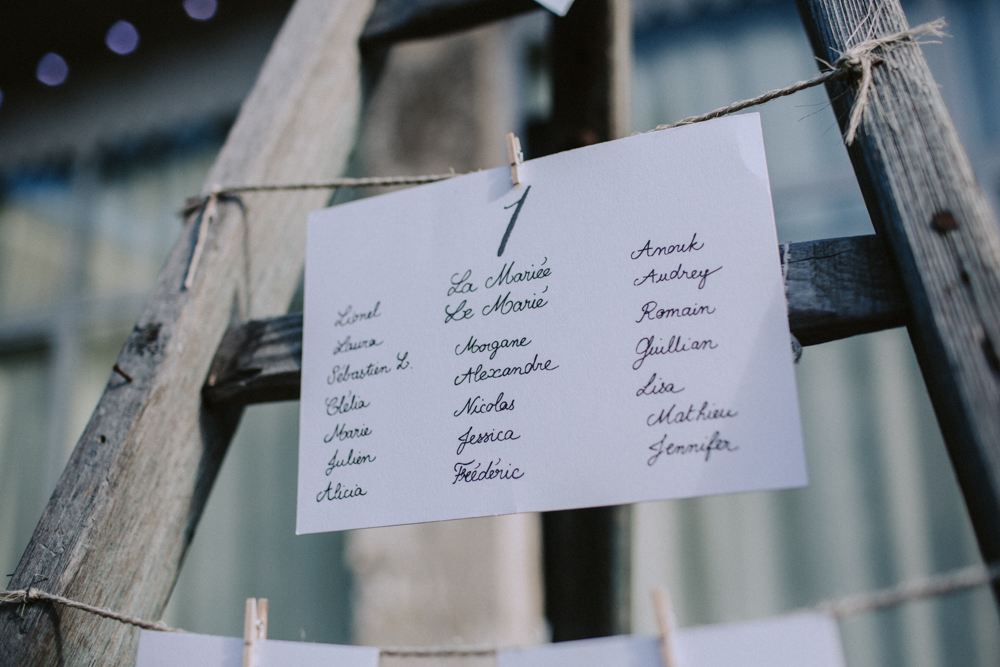 1
Lionel
Laura
Sébastien L.
Clélia
Marie
Julien
Alicia
La Mariée
Le Marié
Morgane
Alexandre
Nicolas
Jessica
Frédéric
Anouk
Audrey
Romain
Guillian
Lisa
Mathieu
Jennifer